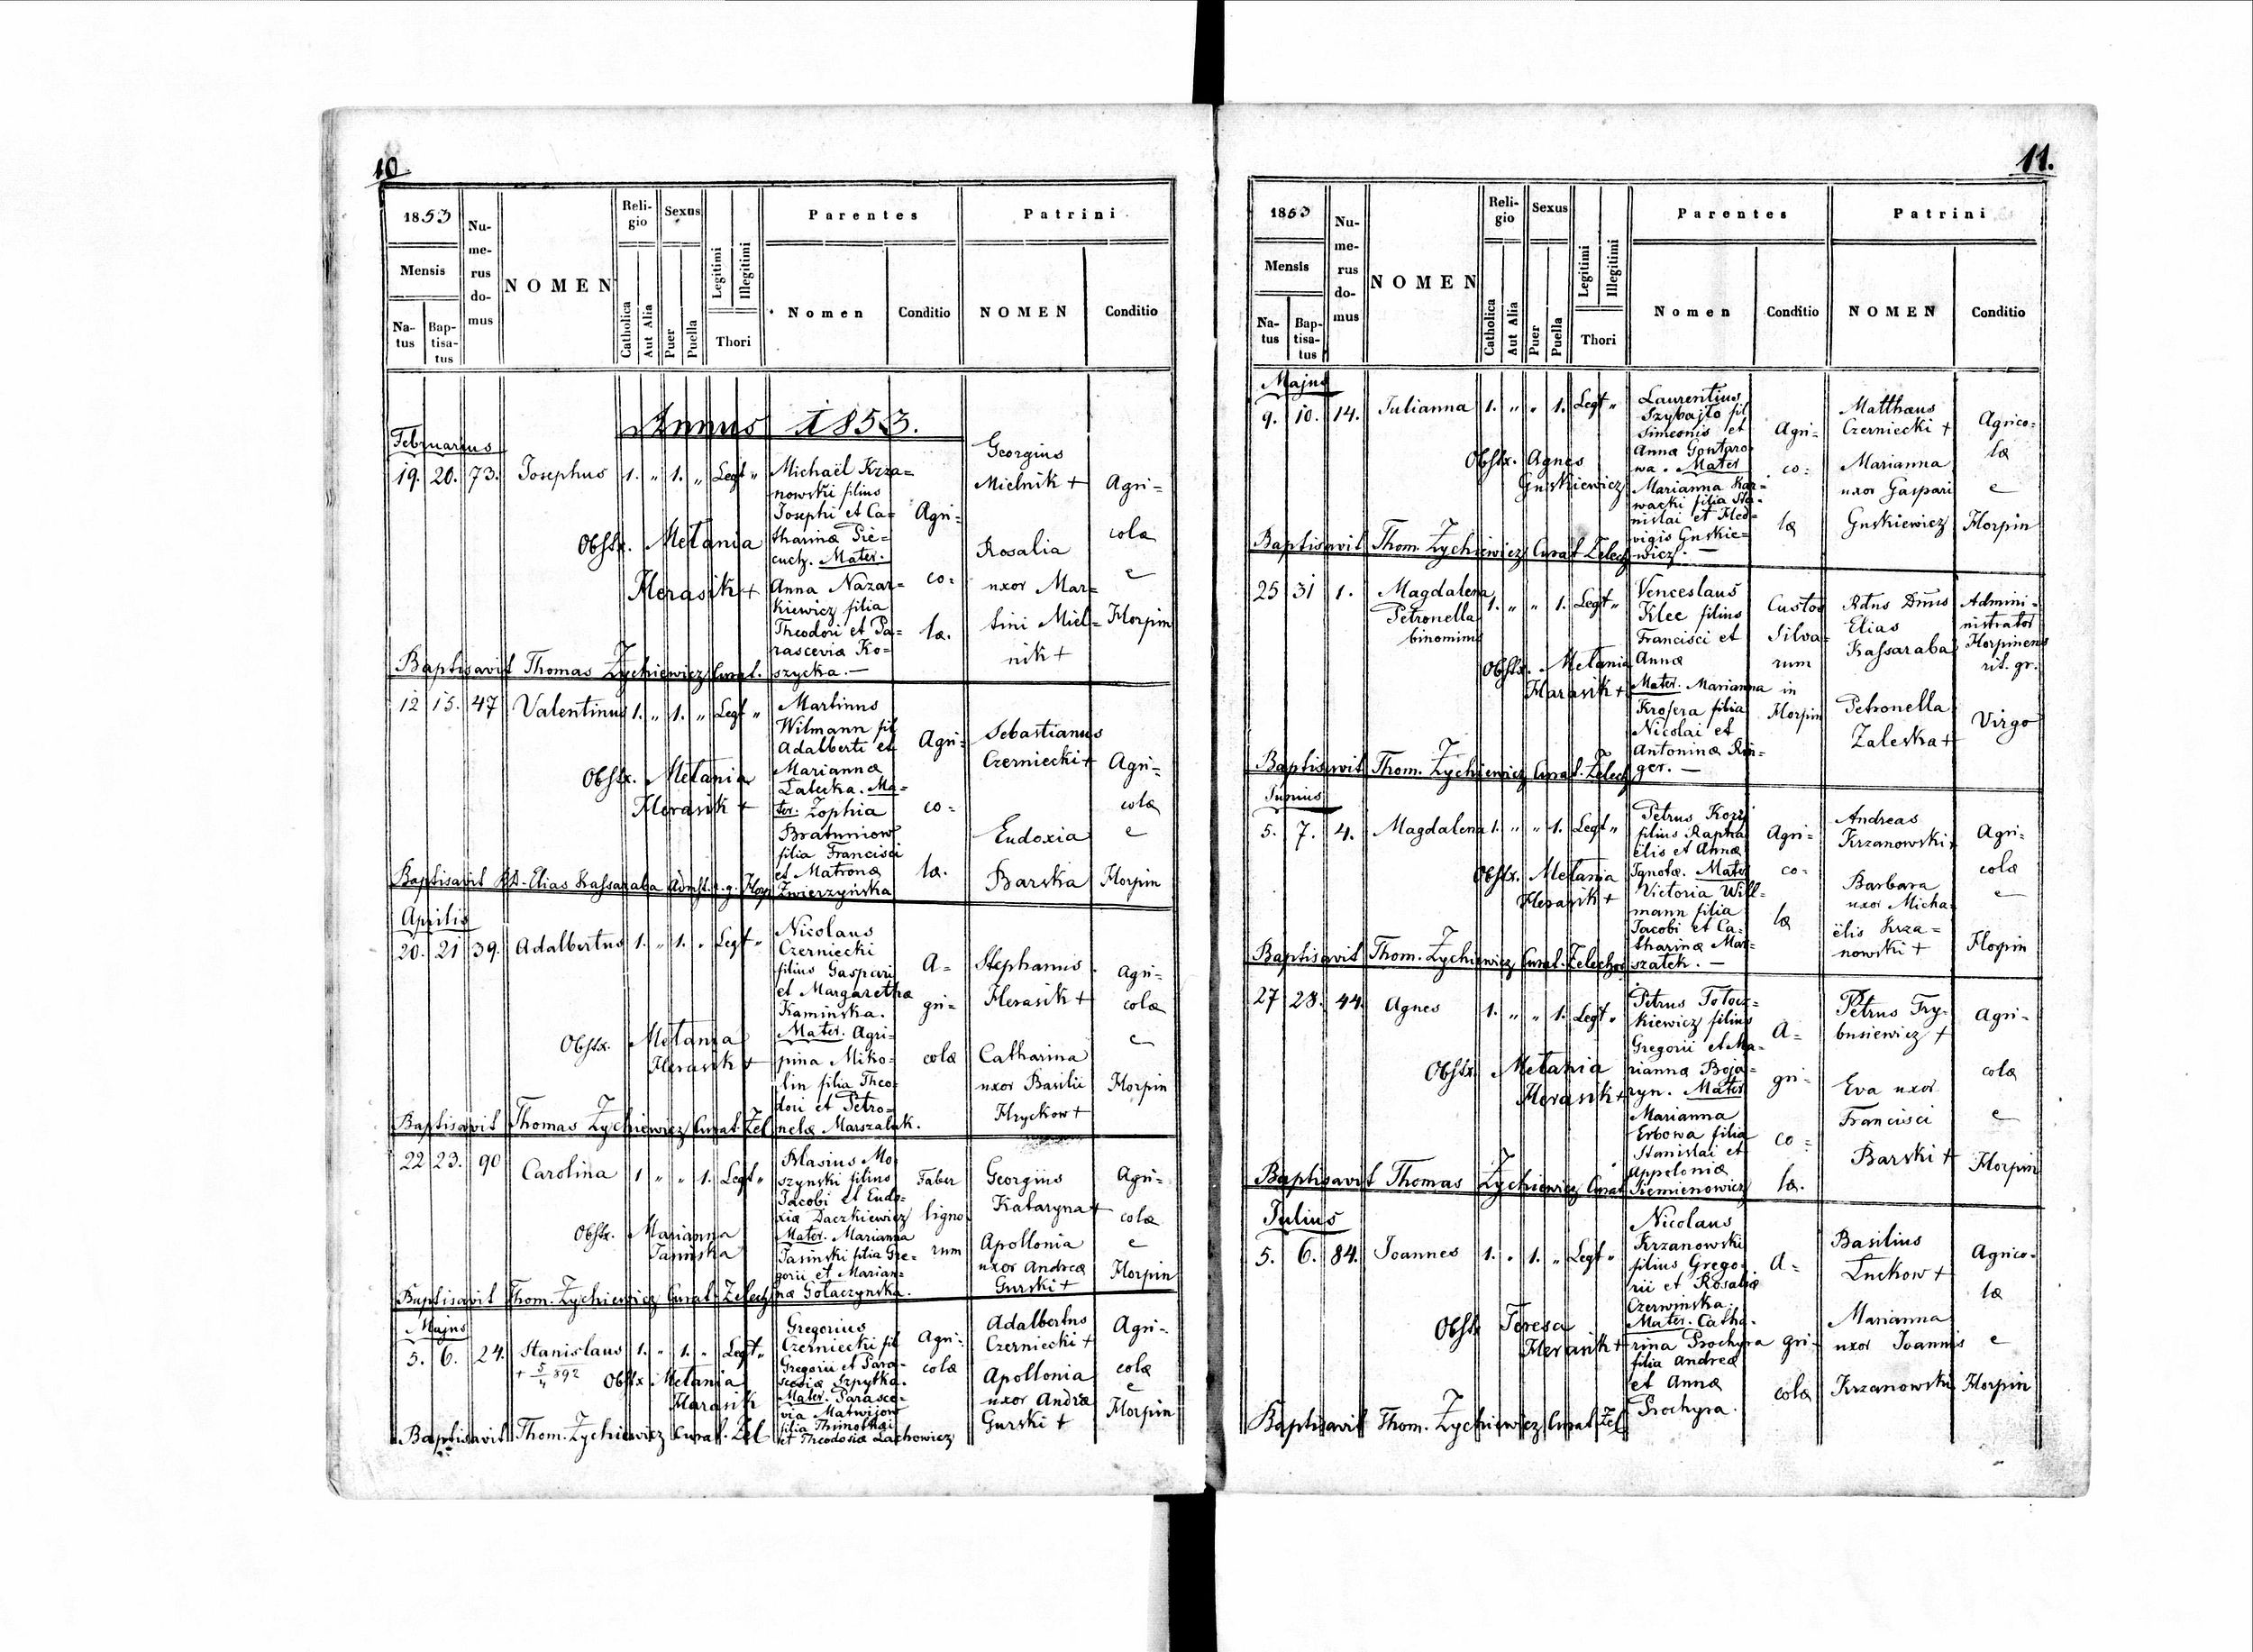 10.
1853
Mensis
Na-
tus
Bap-
tisa-
tus
Nu-
me-
rus
do-
mus
NOMEN
Reli-
gio
Catholica
Aut Alia
Sexus
Puer
Puella
Legitimi
Illegitimi
Thori
Parentes
Nomen
Conditio
Patrini
NOMEN
Conditio
Annus 1853.
Februarius
19. 20. 73. Josephus 1. " 1. " Legt "
Michaël Krza=
nowski filius
Josephi et Ca=
tharinæ Pie=
cuch. Mater.
Anna Nazar=
kiewicz filia
Theodori et Pa=
rascevia Ko=
szycka. —
Agri=
co=
læ.
Georgius
Mielnik +
Rosalia
uxor Mar=
tini Miel=
nik +
Agri=
colæ
e
Horpin
Obstx. Melania
Herasik +
Baptisavit Thomas Zychiewicz Curat.
12 15. 47 Valentinus 1. " 1. " Legt "
Martinus
Wilmann fil
Adalberti et
Mariannæ
Latecka. Ma=
ter. Zophia
Bratuniow
filia Francisci
et Matronæ
Zwierzyńska
Agri=
co=
læ.
Sebastianus
Czerniecki +
Eudoxia
Barska
Agri=
colæ
e
Horpin
Obstx. Melania
Herasik +
Baptisavit Rd. Elias Kassaraba Admst. r. g. Horp
Aprilis
20. 21 39. Adalbertus 1. " 1. " Legt "
Nicolaus
Czerniecki
filius Gaspari
et Margarethæ
Kaminska.
Mater. Agri=
pina Miko=
lin filia Theo=
dori et Petro=
nelæ Marszalek.
A=
gri=
colæ
Stephanus
Herasik +
Catharina
uxor Basilii
Hryckow +
Agri=
colæ
e
Horpin
Obstx. Melania
Herasik +
Baptisavit Thomas Zychiewicz Curat. Zel
22 23. 90 Carolina 1 " " 1. Legt "
Blasius Mo
szynski filius
Jacobi et Eudo=
xiæ Daczkiewicz
Mater. Marianna
Jasinski filia Gre=
gorii et Marian=
næ Gołaczynska.
Faber
ligno
rum
Georgius
Kataryna +
Apollonia
uxor Andreæ
Gurski +
Agri=
colæ
e
Horpin
Obstx. Marianna
Baptisavit Thom. Zychiewicz Curat. Zelech
Majus
5. 6. 24. Stanislaus 1. " 1. " Legt "
+ 5/4 892
Gregorius
Czerniecki fil
Gregorii et Para=
sceviæ Szpytka.
Mater. Parasce=
via Matwijow
filia Thimothæi
et Theodosiæ Lachowicz
Agri=
colæ
Adalbertus
Czerniecki +
Apollonia
uxor Andræ
Gurski +
Agri=
colæ
e
Horpin
Obstx. Melania
Harasik
Baptisavit Thom. Zychiewicz Curat. Zel
11.
1853
Mensis
Na-
tus
Bap-
tisa-
tus
Nu-
me-
rus
do-
mus
NOMEN
Reli-
gio
Catholica
Aut Alia
Sexus
Puer
Puella
Legitimi
Illegitimi
Thori
Parentes
Nomen
Conditio
Patrini
NOMEN
Conditio
Majus
9. 10. 14. Julianna 1. " " 1. Legt "
Laurentius
Szybajło fil
Simeonis et
Annæ Gontaro
wa. Mater
Marianna Kar=
wacki filia Sta=
nislai et Hed=
vigis Guskie=
wicz. —
Agri=
co=
læ
Matthæus
Czerniecki +
Marianna
uxor Gaspari
Guskiewicz
Agrico=
læ
e
Horpin
Obstx. Agnes
Guskiewicz
Baptisavit Thom. Zychiewicz Curat Zelech
25 31 1. Magdalena
Petronella
binomim
1. " " 1. Legt "
Venceslaus
Klee filius
Francisci et
Annæ
Mater. Marianna
Krosera filia
Nicolai et
Antoninæ Rin=
ger. —
Custos
Silva=
rum
in
Horpin
Rdus Dnus
Elias
Kassaraba
Petronella
Zaleska +
Admini=
nistrator
Horpinens
rit. gr.
Virgo
Obstx. Melania
Harasik +
Baptisavit Thom. Zychiewicz Curat. Zelech
Junius
5. 7. 4. Magdalena 1. " " 1. Legt "
Petrus Kozij
filius Rapha
ëlis et Annæ
Ignotæ. Mater
Victoria Will=
mann filia
Jacobi et Ca=
tharinæ Mar=
szatek. —
Agri=
co=
læ
Andreas
Krzanowski +
Barbara
uxor Micha
ëlis Krza=
nowski +
Agri=
colæ
e
Horpin
Obstx. Melania
Herasik +
Baptisavit Thom. Zychiewicz Curat. Zelechov
27 28. 44. Agnes 1. " " 1. Legt "
Petrus Tołocz=
kiewicz filius
Gregorii et Ma=
riannæ Boja=
ryn. Mater
Marianna
Erbowa filia
Stanislai et
Appoloniæ
Siemienowicz
A=
gri=
co=
læ.
Petrus Try=
busiewicz +
Eva uxor
Francisci
Barski +
Agri=
colæ
e
Horpin
Obstx Melania
Herasik +
Baptisavit Thomas Zychiewicz Curat
Julius
5. 6. 84. Joannes 1. " 1. " Legt "
Nicolaus
Krzanowski
filius Grego=
rii et Rosaliæ
Czerwinska.
Mater. Catha=
rina Prochyra
filia Andreæ
et Annæ
Prochyra.
A=
gri=
colæ
Basilius
Luckow +
Marianna
uxor Joannis
Krzanowski
Agrico=
læ
e
Horpin
Obstx Teresa
Herasik +
Baptisavit Thom. Zychiewicz Curat Zel